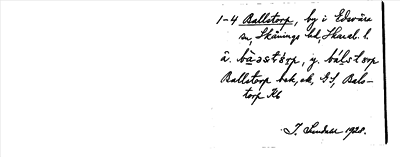 1-4 Ballstorp, by i Edsvära
sn, Skånings hd, Skarab. l.
ä. bàəstòrp, y. bálstorp
Ballstorp bek, ek, GS, Bals-
torp Kb
J. Sundahl 1920.